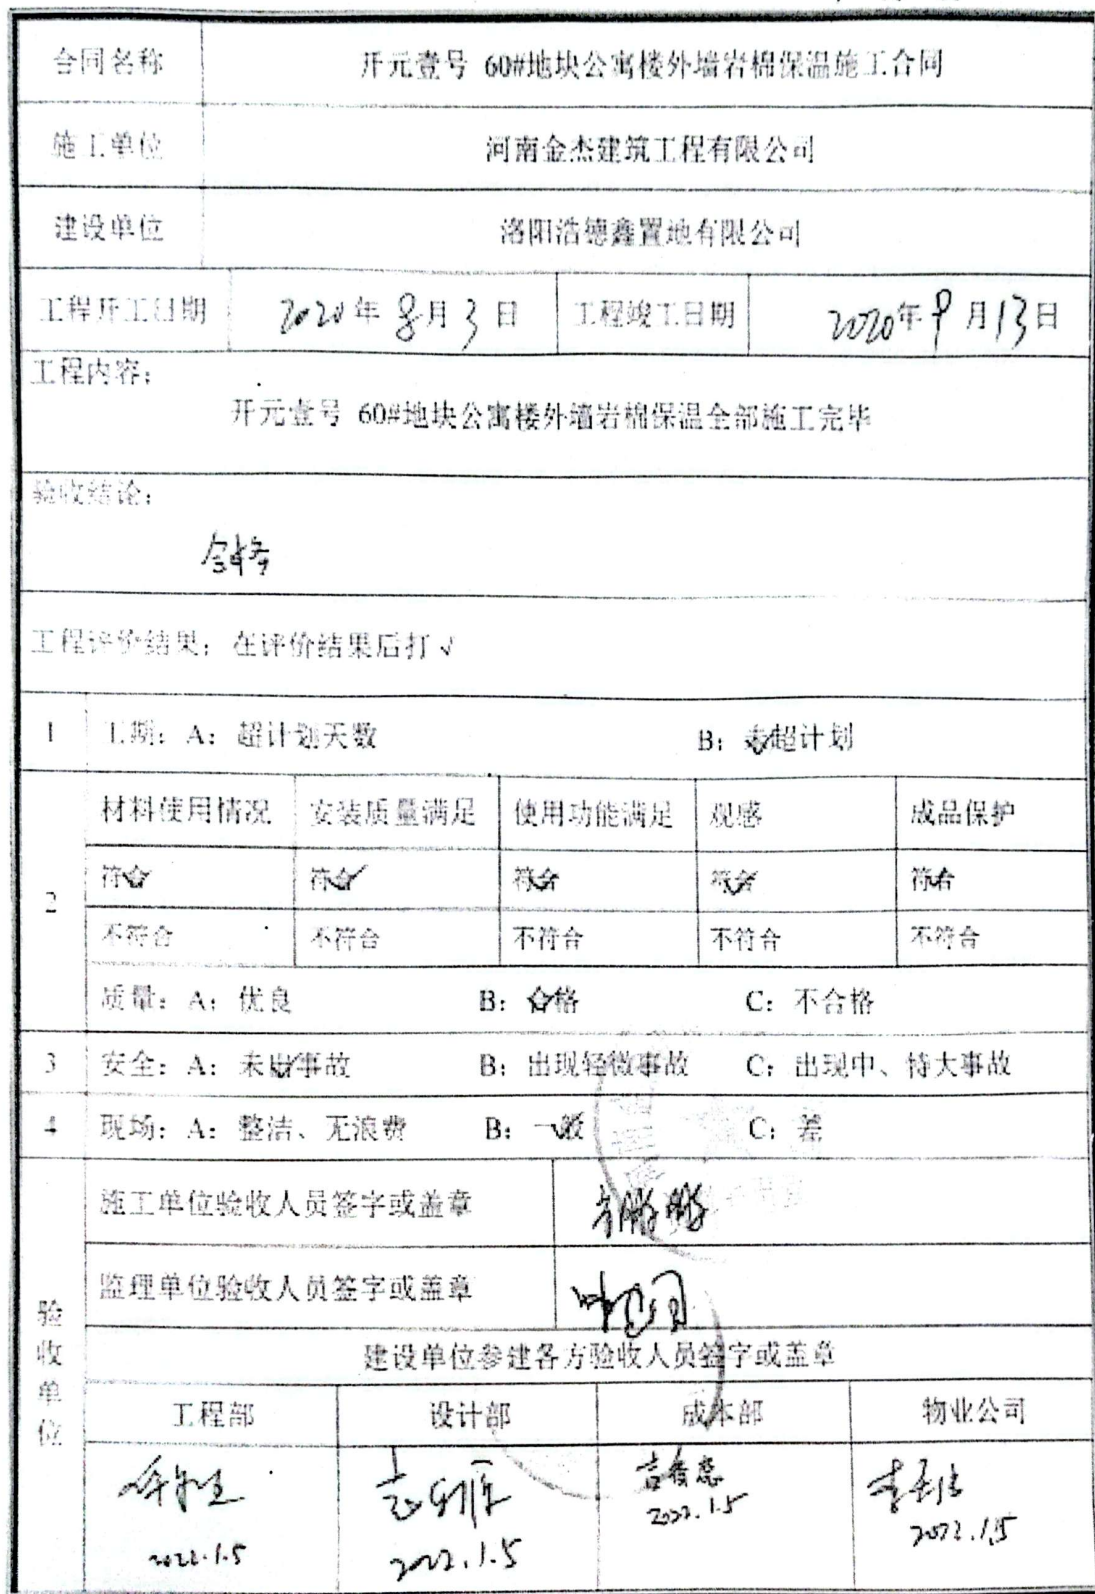 合同名称 开元壹号 60#地块公寓楼外墙岩棉保温施工合同
施工单位 河南金杰建筑工程有限公司
建设单位 洛阳浩德鑫置地有限公司
工程开工日期 2020年8月3日 工程竣工日期 2020年9月13日
工程内容:
开元壹号 60#地块公寓楼外墙岩棉保温全部施工完毕
验收结论:
合格
工程评价结果: 在评价结果后打√
1 工期: A: 超计划天数 B: 未超计划
材料使用情况 安装质量满足 使用功能满足 观感 成品保护
2 符合 符合 符合 符合 符合
不符合 不符合 不符合 不符合 不符合
质量: A: 优良 B: 合格 C: 不合格
3 安全: A: 未出事故 B: 出现轻微事故 C: 出现中、特大事故
4 现场: A: 整洁、无浪费 B: 一般 C: 差
验收单位
施工单位验收人员签字或盖章
监理单位验收人员签字或盖章
建设单位参建各方验收人员签字或盖章
工程部 设计部 成本部 物业公司
2022.1.5 2022.1.5 2022.1.5 2022.1.5